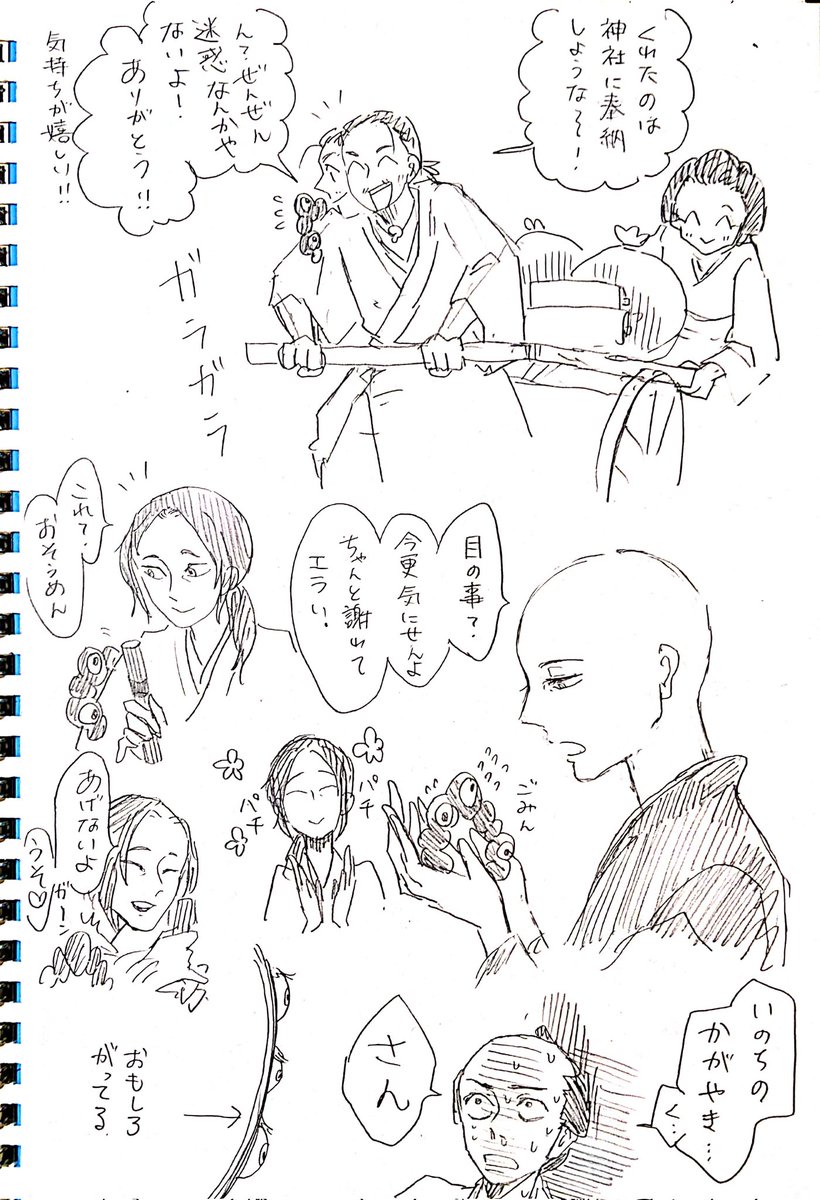 くれたのは
神社に奉納
しような〜!
ん?ぜんぜん
迷惑なんかや
ないよ!
ありがとう!!
気持ちが嬉しい!!
ガラガラ
目の事?
今更気にせんよ
ちゃんと謝れて
エラい!
これ?
おそうめん
ごみん
パチ
パチ
あげないよ
うそ♡
ガーン
いのちの
かがやき…
く…
さん
おもしろ
がってる